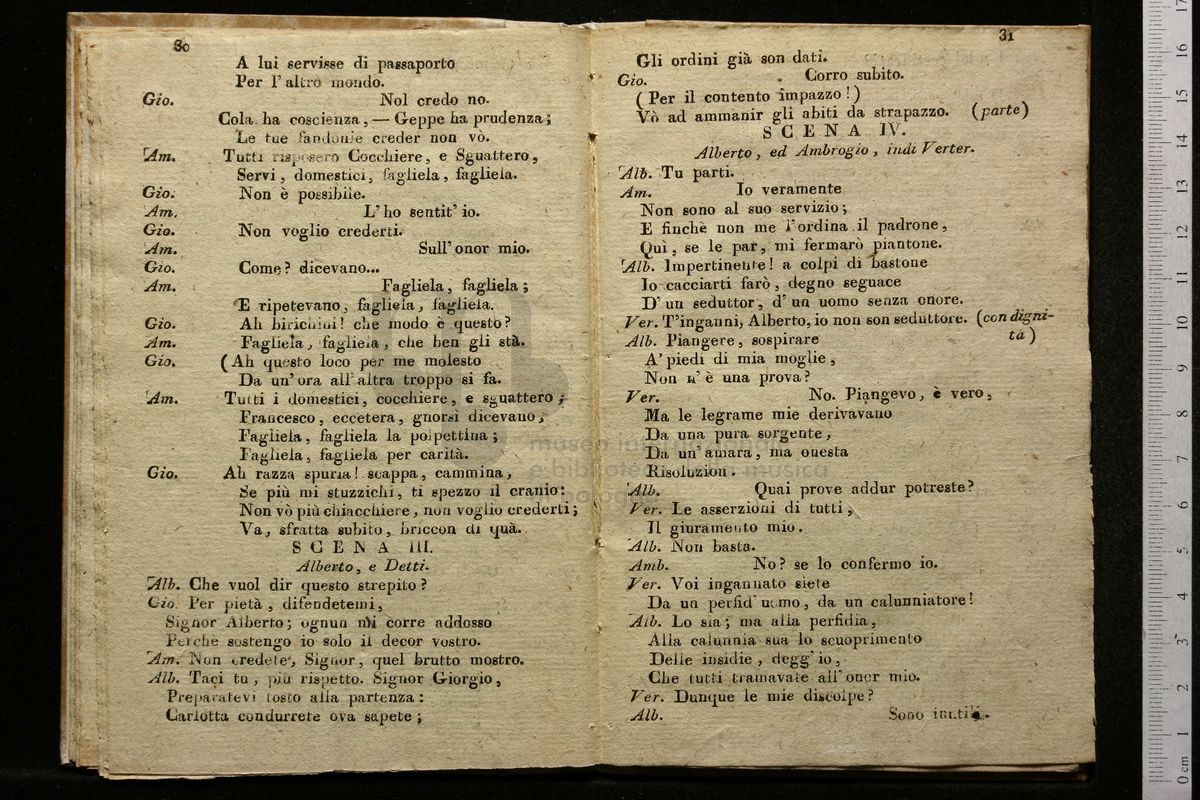 30
A lui servisse di passaporto
Per l'altro mondo.
Gio. Nol credo no.
Cola ha coscienza, — Geppe ha prudenza;
Le tue fandonie creder non vò.
Am. Tutti risposero Cocchiere, e Sguattero,
Servi, domestici, fagliela, fagliela.
Gio. Non è possibile.
Am. L'ho sentit' io.
Gio. Non voglio crederti.
Am. Sull' onor mio.
Gio. Come? dicevano...
Am. Fagliela, fagliela;
E ripetevano, fagliela, fagliela.
Gio. Ah birichini! che modo è questo?
Am. Fagliela, fagliela, che ben gli stà.
Gio. (Ah questo loco per me molesto
Da un' ora all' altra troppo si fa.
Am. Tutti i domestici, cocchiere, e sguattero;
Francesco, eccetera, gnorsì dicevano,
Fagliela, fagliela la polpettina;
Fagliela, fagliela per carità.
Gio. Ah razza spuria! scappa, cammina,
Se più mi stuzzichi, ti spezzo il cranio:
Non vò più chiacchiere, non voglio crederti;
Va, sfratta subito, briccon di quà.
SCENA III.
Alberto, e Detti.
Alb. Che vuol dir questo strepito?
Gio. Per pietà, difendetemi,
Signor Alberto; ognun mi corre addosso
Perchè sostengo io solo il decor vostro.
Am. Non credete, Signor, quel brutto mostro.
Alb. Taci tu, più rispetto. Signor Giorgio,
Preparatevi tosto alla partenza:
Carlotta condurrete ova sapete;
31
Gli ordini già son dati.
Gio. Corro subito.
(Per il contento impazzo!)
Vò ad ammanir gli abiti da strapazzo. (parte)
SCENA IV.
Alberto, ed Ambrogio, indi Verter.
Alb. Tu parti.
Am. Io veramente
Non sono al suo servizio;
E finchè non me l'ordina il padrone,
Quì, se le par, mi fermarò piantone.
Alb. Impertinente! a colpi di bastone
Io cacciarti farò, degno seguace
D' un seduttor, d' un uomo senza onore.
Ver. T'inganni, Alberto, io non son seduttore. (con digni-
tà)
Alb. Piangere, sospirare
A' piedi di mia moglie,
Non n' è una prova?
Ver. No. Piangevo, è vero,
Ma le legrame mie derivavano
Da una pura sorgente,
Da un' amara, ma onesta
Risoluzion.
Alb. Quai prove addur potreste?
Ver. Le asserzioni di tutti,
Il giuramento mio.
Alb. Non basta.
Amb. No? se lo confermo io.
Ver. Voi ingannato siete
Da un perfid' uomo, da un calunniatore!
Alb. Lo sia; ma alla perfidia,
Alla calunnia sua lo scuoprimento
Delle insidie, degg' io,
Che tutti tramavate all' onor mio.
Ver. Dunque le mie discolpe?
Alb. Sono inutili.
museo internazionale
e biblioteca della musica
bologna
0 cm 1 2 3 4 5 6 7 8 9 10 11 12 13 14 15 16 17